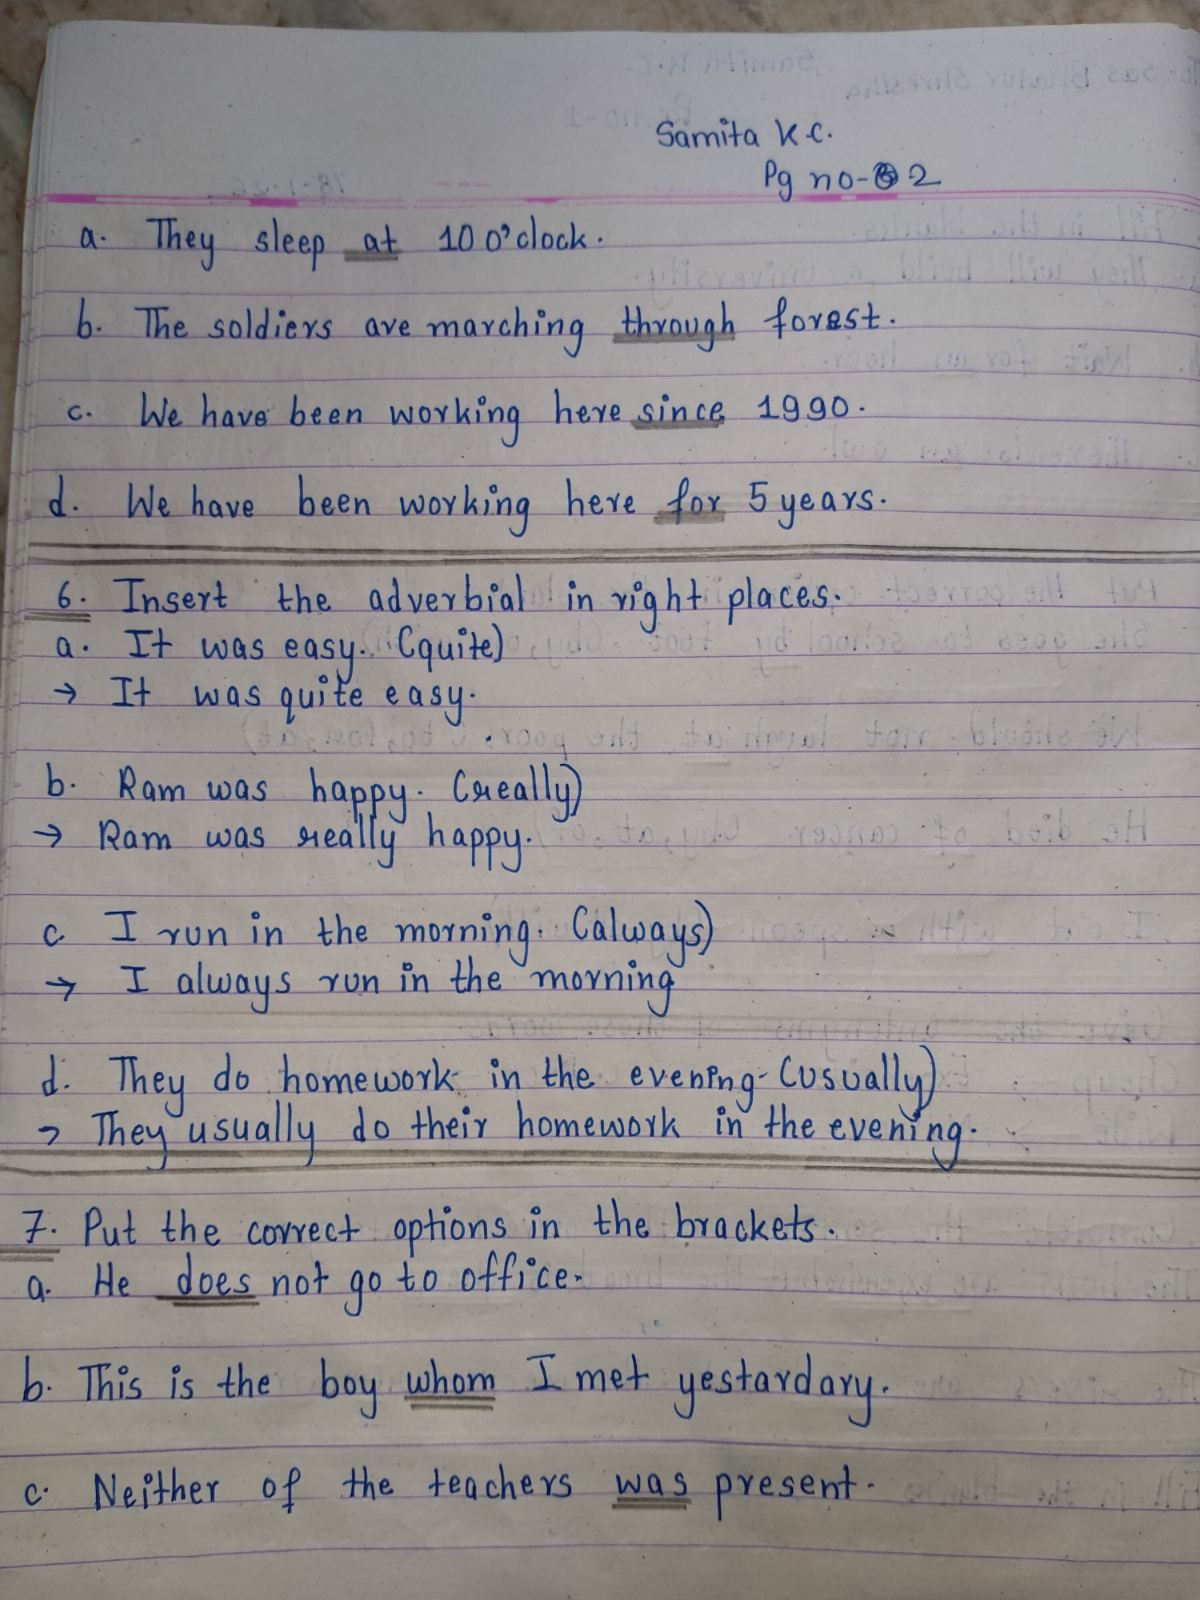 Samita K.C.
Pg no- 2
a. They sleep at 10 o'clock.
b. The soldiers are marching through forest.
c. We have been working here since 1990.
d. We have been working here for 5 years.
6. Insert the adverbial in right places.
a. It was easy. (quite)
→ It was quite easy.
b. Ram was happy. (really)
→ Ram was really happy.
c. I run in the morning. (always)
→ I always run in the morning
d. They do homework in the evening. (usually)
→ They usually do their homework in the evening.
7. Put the correct options in the brackets.
a. He does not go to office.
b. This is the boy whom I met yestardary.
c. Neither of the teachers was present.